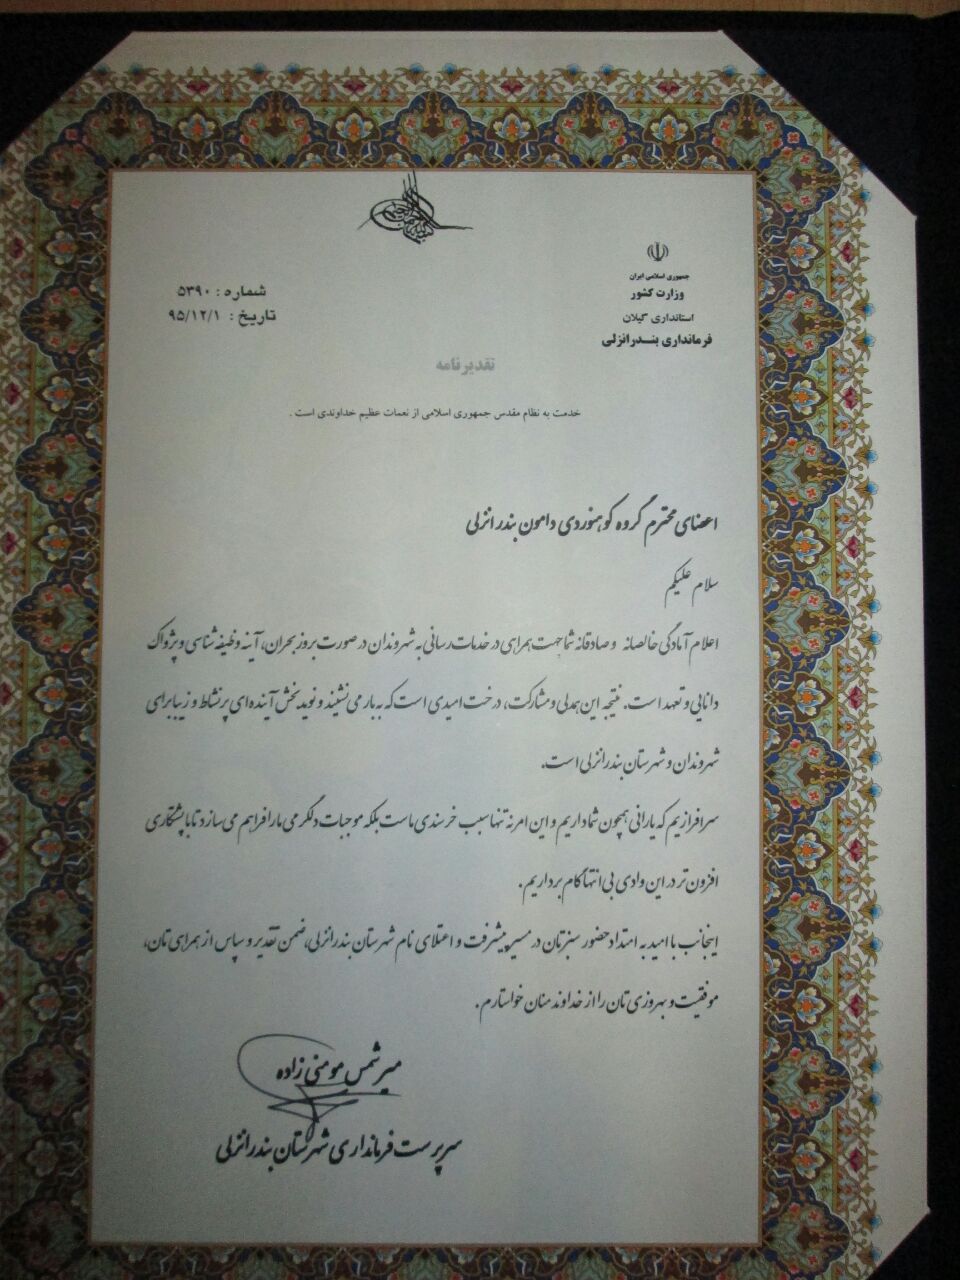 جمهوری اسلامی ایران
وزارت کشور
استانداری گیلان
فرمانداری بندرانزلی
شماره : ۵۳۹۰
تاریخ : ۹۵/۱۲/۱
تقدیرنامه
خدمت به نظام مقدس جمهوری اسلامی از نعمات عظیم خداوندی است .
اعضای محترم گروه کوهنوردی دامون بندرانزلی
سلام علیکم
اعلام آمادگی خالصانه و صادقانه شما جهت همراهی در خدمات رسانی به شهروندان در صورت بروز بحران، آینه وظیفه شناسی و پژواک
دانایی و تعهد است. نتیجه این همدلی و مشارکت، درخت امیدی است که به بار می نشیند و نوید بخش آینده ای پر نشاط و زیبا برای
شهروندان و شهرستان بندرانزلی است.
سرافرازیم که یارانی همچون شما داریم و این امر نه تنها سبب خرسندی ماست بلکه موجبات دلگرمی ما را فراهم می سازد تا با پشتکاری
افزون تر در این وادی بی انتها گام برداریم .
اینجانب با امید به امتداد حضور سبزتان در مسیر پیشرفت و اعتلای نام شهرستان بندرانزلی، ضمن تقدیر و سپاس از همراهی تان،
موفقیت و بهروزی تان را از خداوند منان خواستارم .
میرشمس مومنی زاده
سرپرست فرمانداری شهرستان بندرانزلی